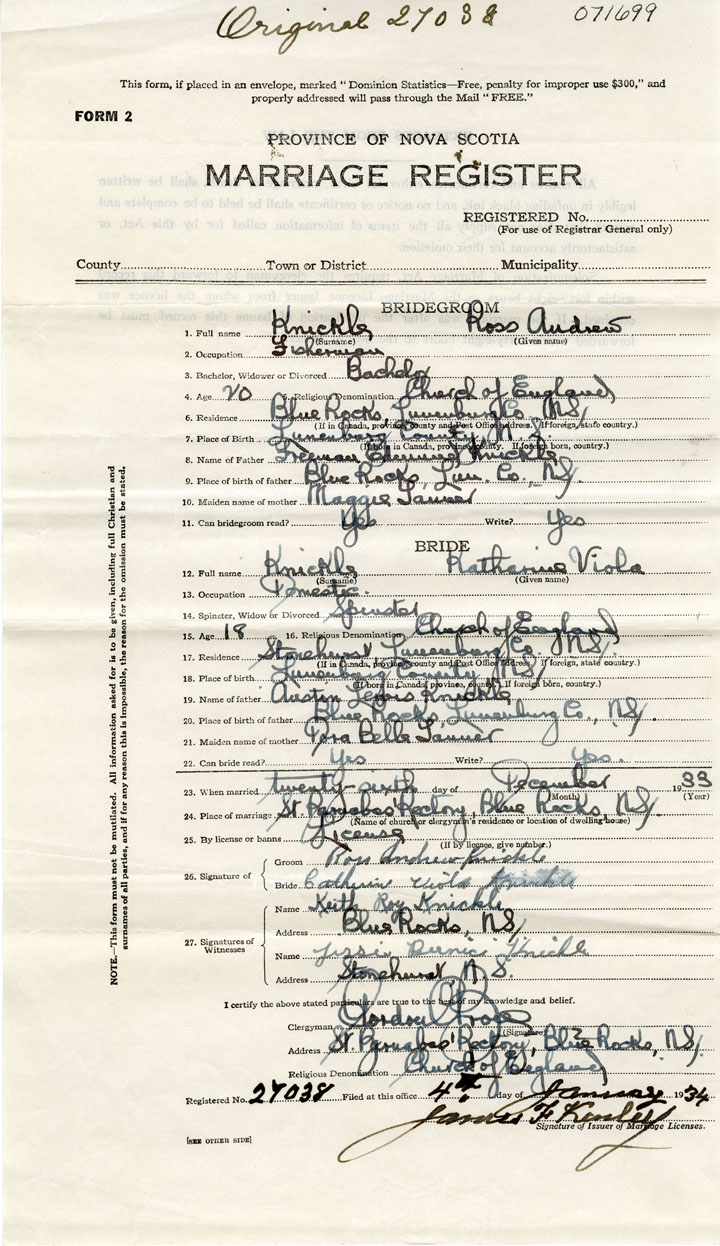 Original 27038
071699
This form, if placed in an envelope, marked "Dominion Statistics—Free, penalty for improper use $300," and
properly addressed will pass through the Mail "FREE."
FORM 2
PROVINCE OF NOVA SCOTIA
MARRIAGE REGISTER
REGISTERED No.
(For use of Registrar General only)
County Town or District Municipality
BRIDEGROOM
1. Full name Knickle Ross Andrew
(Surname) (Given name)
2. Occupation Fisherman
3. Bachelor, Widower or Divorced Bachelor
4. Age 20 5. Religious Denomination Church of England
6. Residence Blue Rocks, Lunenburg Co., N.S.
(If in Canada, province, county and Post Office address. If foreign, state country.)
7. Place of Birth Lunenburg County, N.S.
(If born in Canada, province, county. If foreign born, country.)
8. Name of Father Freeman Knickle
9. Place of birth of father Blue Rocks, Lun. Co., N.S.
10. Maiden name of mother Maggie Tanner
11. Can bridegroom read? Yes Write? Yes
BRIDE
12. Full name Knickle Katharine Viola
(Surname) (Given name)
13. Occupation Domestic
14. Spinster, Widow or Divorced Spinster
15. Age 18 16. Religious Denomination Church of England
17. Residence Stonehurst Lunenburg Co., N.S.
(If in Canada, province, county and Post Office address. If foreign, state country.)
18. Place of birth Lunenburg County, N.S.
(If born in Canada, province, county. If foreign born, country.)
19. Name of father Austin Lewis Knickle
20. Place of birth of father Blue Rocks, Lunenburg Co., N.S.
21. Maiden name of mother Dora Belle Tanner
22. Can bride read? Yes Write? Yes.
23. When married twenty-sixth day of December 1933
(Month) (Year)
24. Place of marriage St. Barnabas' Rectory, Blue Rocks, N.S.
(Name of church or clergyman's residence or location of dwelling house)
25. By license or banns License
(If by licence, give number.)
26. Signature of
Groom Ross Andrew Knickle
Bride Catherin Viola Knickle
27. Signatures of Witnesses
Name Keith Roy Knickle
Address Blue Rocks, N.S.
Name Knickle
Address Stonehurst, N.S.
I certify the above stated particulars are true to the best of my knowledge and belief.
Clergyman
(Signature)
Address St. Barnabas' Rectory, Blue Rocks, N.S.
Religious Denomination Church of England
Registered No. 27038 Filed at this office 4th day of January 1934
James F Kinley
Signature of Issuer of Marriage Licenses.
[SEE OTHER SIDE]
NOTE.—This form must not be mutilated. All information asked for is to be given, including full Christian and
surnames of all parties, and if for any reason this is impossible, the reason for the omission must be stated.